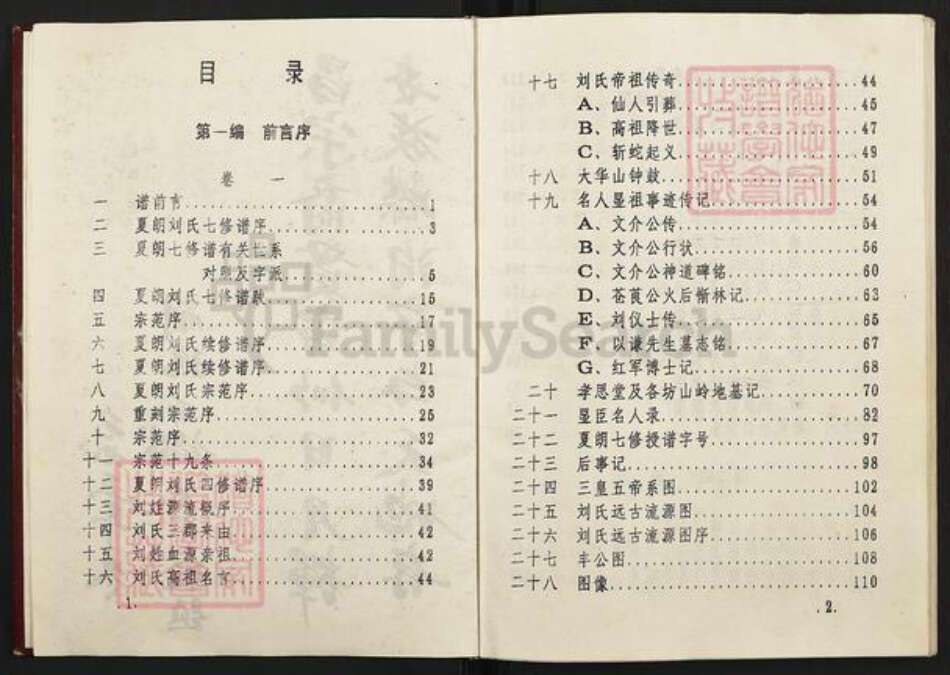 目 录
第一编 前言序
卷 一
一 谱前言 1
二 夏朗刘氏七修谱序 3
三 夏朗七修谱有关世系
对照及字派 5
四 夏朗刘氏七修谱跋 15
五 宗范序 17
六 夏朗刘氏续修谱序 19
七 夏朗刘氏续修谱序 21
八 夏朗刘氏宗范序 23
九 重刻宗范序 25
十 宗范序 32
十一 宗范十九条 34
十二 夏朗刘氏四修谱序 39
十三 刘姓源流概序 41
十四 刘氏三郡来由 42
十五 刘姓血源亲祖 42
十六 刘氏高祖名言 44
.1.
十七 刘氏帝祖传奇 44
A、仙人引葬 45
B、高祖降世 47
C、斩蛇起义 49
十八 大华山钟鼓 51
十九 名人显祖事迹传记 54
A、文介公传 54
B、文介公行状 56
C、文介公神道碑铭 60
D、苍莨公火后惭林记 63
E、刘仪士传 65
F、以谦先生墓志铭 67
G、红军博士记 68
二十 孝思堂及各坊山岭地基记 70
二十一 显臣名人录 82
二十二 夏朗七修授谱字号 97
二十三 后事记 98
二十四 三皇五帝系图 102
二十五 刘氏远古流源图 104
二十六 刘氏远古流源图序 106
二十七 丰公图 108
二十八 图像 110
.2.
FamilySearch